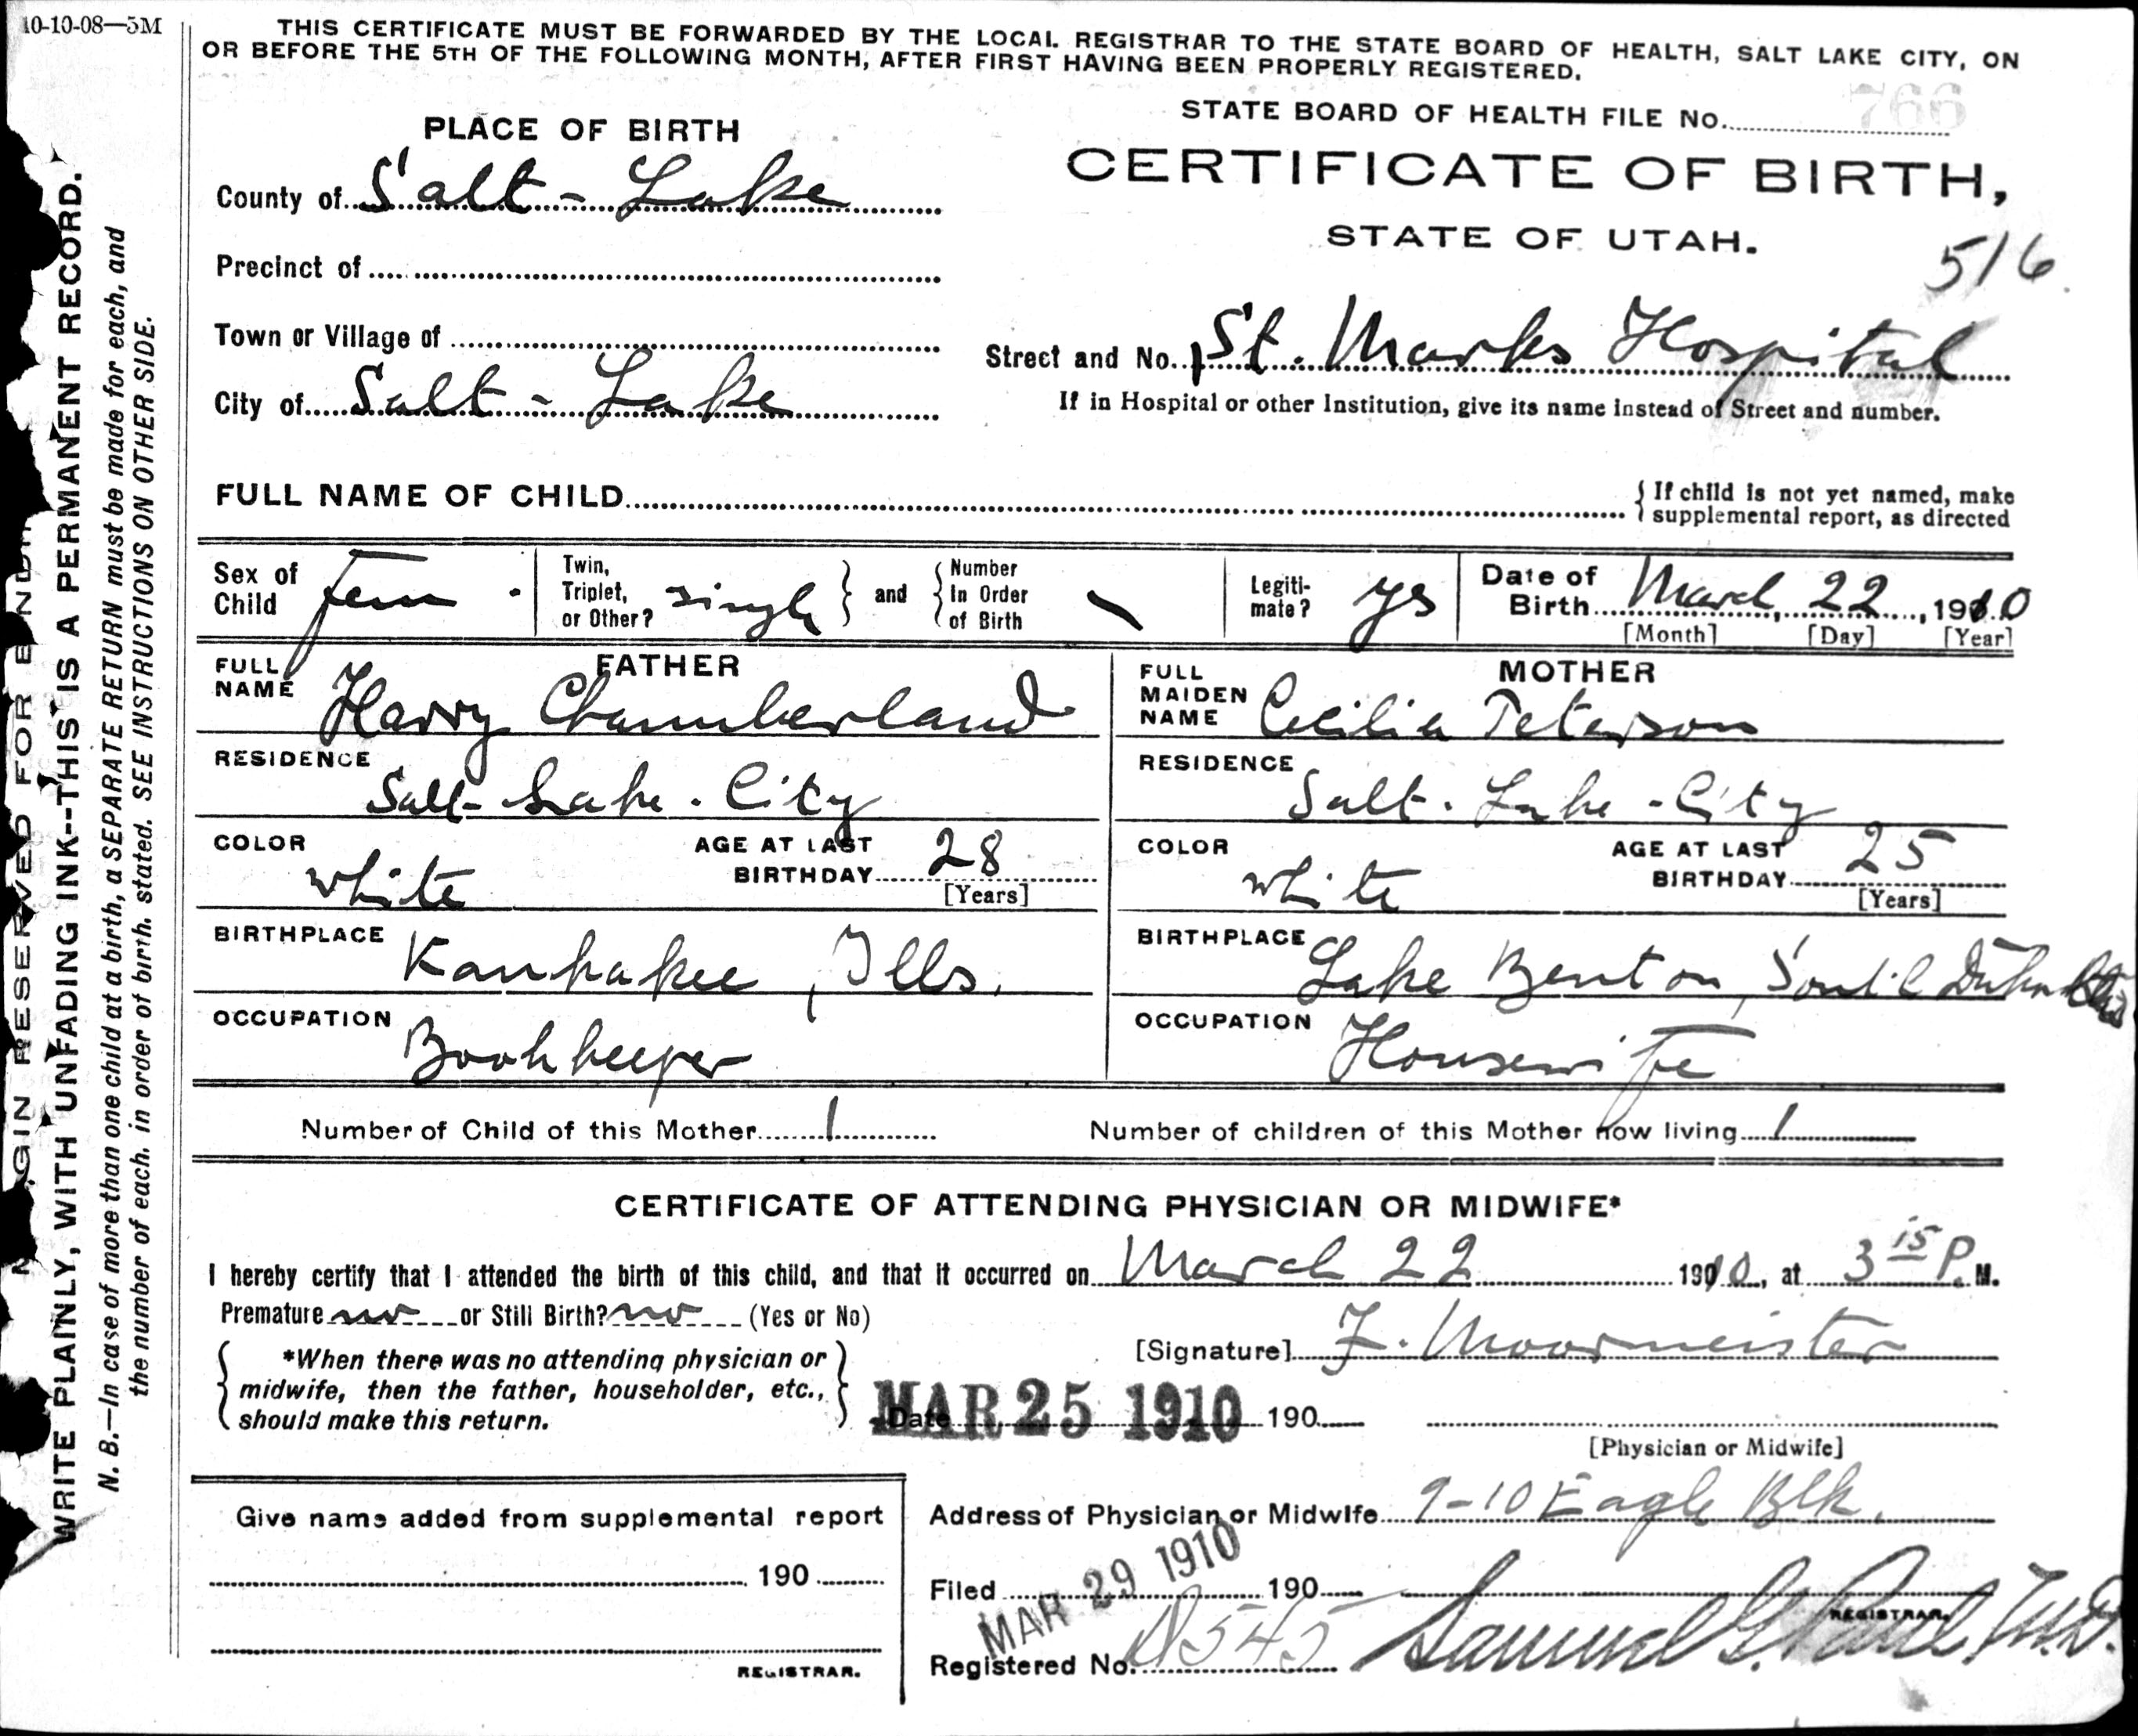 10-10-08—5M
THIS CERTIFICATE MUST BE FORWARDED BY THE LOCAL REGISTRAR TO THE STATE BOARD OF HEALTH, SALT LAKE CITY, ON
OR BEFORE THE 5TH OF THE FOLLOWING MONTH, AFTER FIRST HAVING BEEN PROPERLY REGISTERED.
STATE BOARD OF HEALTH FILE No. 766
PLACE OF BIRTH
CERTIFICATE OF BIRTH,
STATE OF UTAH.
516
County of Salt-Lake
Precinct of
Town or Village of
Street and No. St. Marks Hospital
City of Salt-Lake
If in Hospital or other Institution, give its name instead of Street and number.
FULL NAME OF CHILD
If child is not yet named, make
supplemental report, as directed
Sex of Child fem
Twin, Triplet, or Other? single and Number In Order of Birth
Legiti-mate? yes
Date of Birth March 22, 1910
[Month] [Day] [Year]
FATHER
FULL NAME Harry Chamberland
MOTHER
FULL MAIDEN NAME Cecilia Peterson
RESIDENCE Salt-Lake. City
RESIDENCE Salt. Lake-City
COLOR white AGE AT LAST BIRTHDAY 28 [Years]
COLOR white AGE AT LAST BIRTHDAY 25 [Years]
BIRTHPLACE Kankakee, Ills.
BIRTHPLACE Lake Benton, South
OCCUPATION Bookkeeper
OCCUPATION Housewife
Number of Child of this Mother 1
Number of children of this Mother now living 1
CERTIFICATE OF ATTENDING PHYSICIAN OR MIDWIFE*
I hereby certify that I attended the birth of this child, and that it occurred on March 22 1910, at 3 15 P. M.
Premature no or Still Birth? no (Yes or No)
[Signature] F. Moormeister
*When there was no attending physician or
midwife, then the father, householder, etc.,
should make this return.
Date MAR 25 1910 190
[Physician or Midwife]
Give name added from supplemental report
190
REGISTRAR.
Address of Physician or Midwife 9-10 Eagle Blk.
Filed MAR 29 1910 190
REGISTRAR.
Registered No. 545 Samuel G. Paul, M.D.
GIN RESERVED FOR
WRITE PLAINLY, WITH UNFADING INK--THIS IS A PERMANENT RECORD.
N. B.—In case of more than one child at a birth, a SEPARATE RETURN must be made for each, and
the number of each. in order of birth. stated. SEE INSTRUCTIONS ON OTHER SIDE.